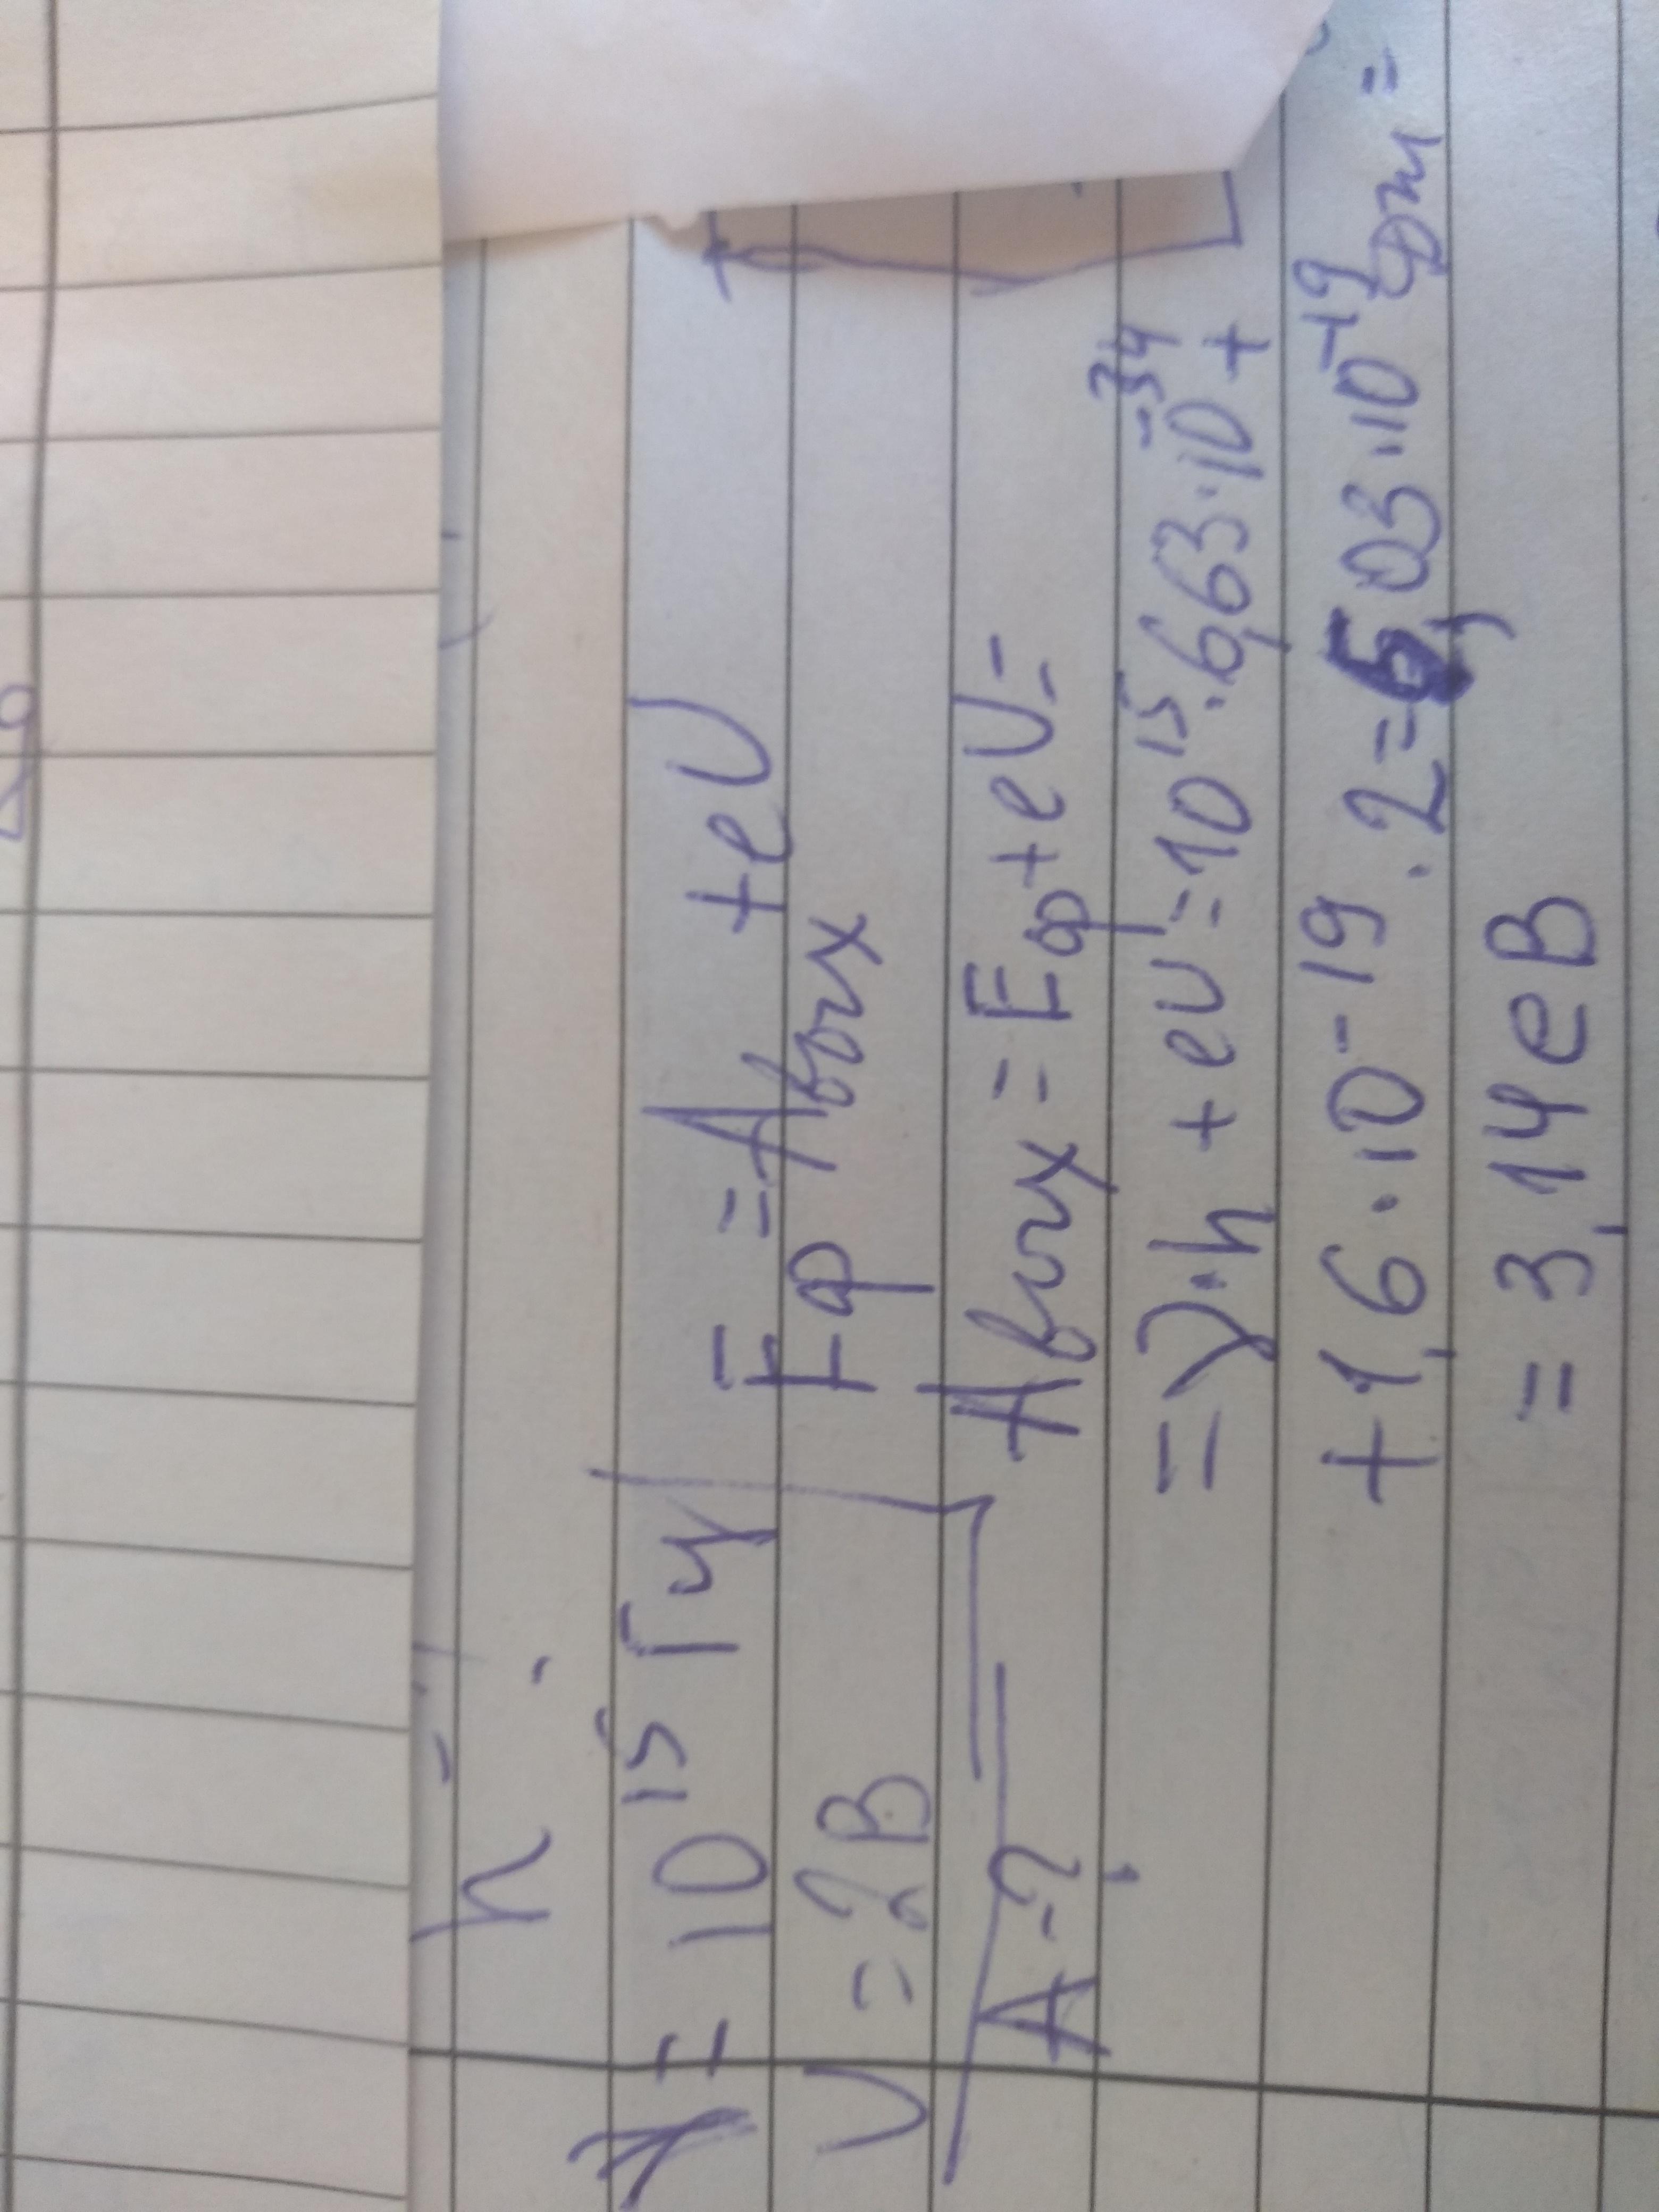 γ = 10¹⁵ Гц
U = 2В
A - ?
E = Aвих + eU
Eф
Aвих = Eф + eU =
= γ·h + eU = 10¹⁵ · 6,63·10⁻³⁴ +
+ 1,6·10⁻¹⁹ · 2 = 5,03·10⁻¹⁹ Дж =
= 3,14 еВ